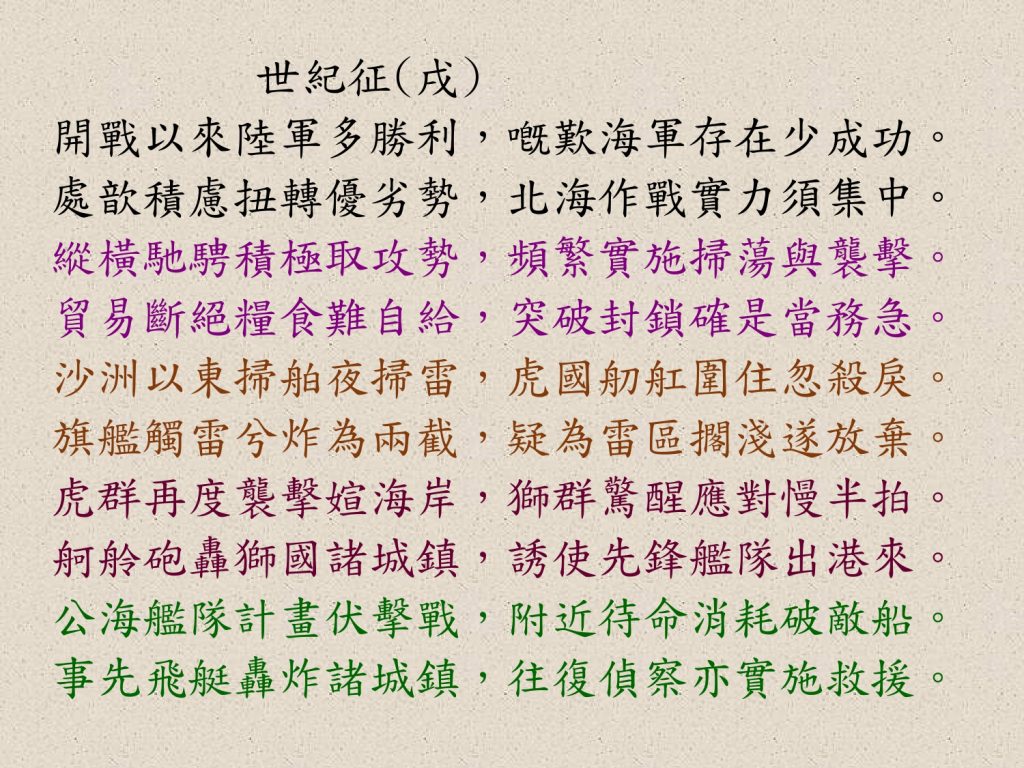 世紀征(戌)
開戰以來陸軍多勝利，嘅歎海軍存在少成功。
處歆積慮扭轉優劣勢，北海作戰實力須集中。
縱橫馳騁積極取攻勢，頻繁實施掃蕩與襲擊。
貿易斷絕糧食難自給，突破封鎖確是當務急。
沙洲以東掃舶夜掃雷，虎國舠舡圍住忽殺戾。
旗艦觸雷兮炸為兩截，疑為雷區擱淺遂放棄。
虎群再度襲擊媗海岸，獅群驚醒應對慢半拍。
舸舲砲轟獅國諸城鎮，誘使先鋒艦隊出港來。
公海艦隊計畫伏擊戰，附近待命消耗破敵船。
事先飛艇轟炸諸城鎮，往復偵察亦實施救援。